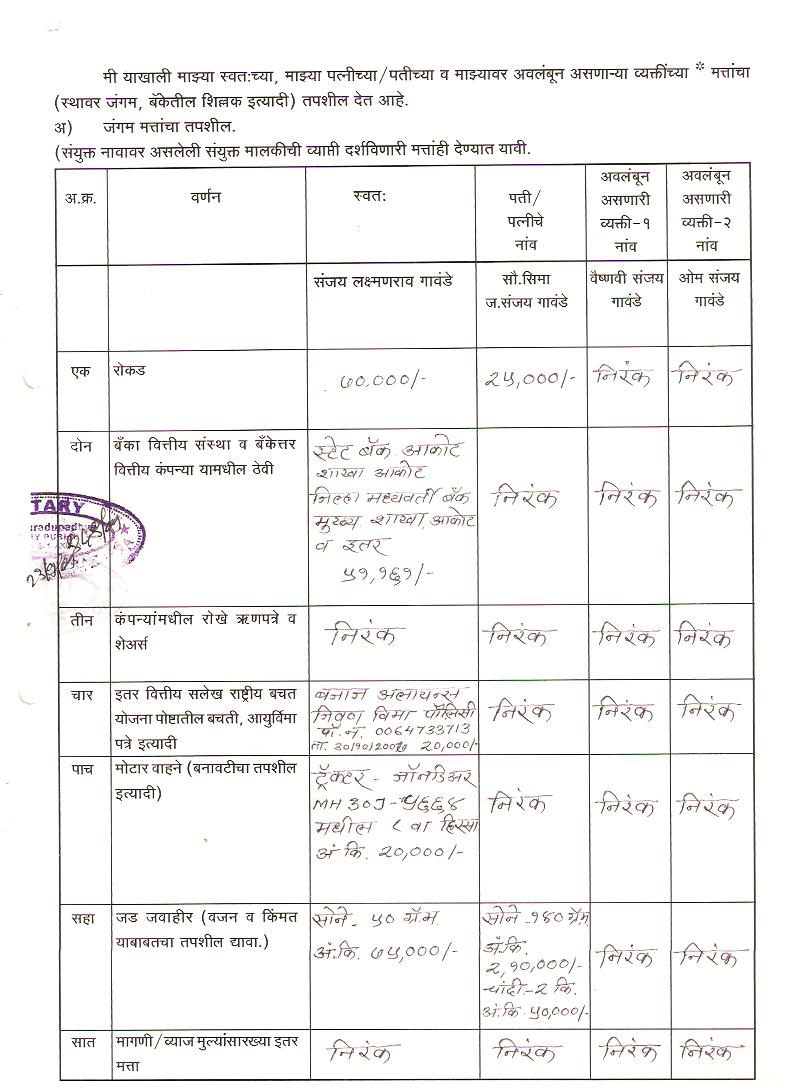 मी याखाली माझ्या स्वत:च्या, माझ्या पत्नीच्या/पतीच्या व माझ्यावर अवलंबून असणाऱ्या व्यक्तींच्या * मत्तांचा
(स्थावर जंगम, बँकेतील शिल्लक इत्यादी) तपशील देत आहे.
अ) जंगम मत्तांचा तपशील.
(संयुक्त नावावर असलेली संयुक्त मालकीची व्याप्ती दर्शविणारी मत्तांही देण्यात यावी.
अ.क्र. वर्णन स्वत: पती/ पत्नीचे नांव अवलंबून असणारी व्यक्ती-१ नांव अवलंबून असणारी व्यक्ती-२ नांव
संजय लक्ष्मणराव गावंडे सौ.सिमा ज.संजय गावंडे वैष्णवी संजय गावंडे ओम संजय गावंडे
एक रोकड ७०.०००/- २५,०००/- निरंक निरंक
दोन बँका वित्तीय संस्था व बँकेत्तर वित्तीय कंपन्या यामधील ठेवी
स्टेट बँक आकोट
शाखा आकोट
जिल्हा मध्यवर्ती बँक
मुख्य शाखा, आकोट
व इतर
५१,१६१/-
निरंक निरंक निरंक
TARY
तीन कंपन्यांमधील रोखे ऋणपत्रे व शेअर्स निरंक निरंक निरंक निरंक
चार इतर वित्तीय सलेख राष्ट्रीय बचत योजना पोष्टातील बचती, आयुर्विमा पत्रे इत्यादी
बजाज अलायन्स
जिवन विमा पॉलिसी
पॉ.नं. 0064733713
ता. 30/10/2007 20,000/-
निरंक निरंक निरंक
पाच मोटार वाहने (बनावटीचा तपशील इत्यादी)
ट्रॅक्टर - जॉनडिअर
MH 30J-५६६४
मधील ८ वा हिस्सा
अं कि. 20,000/-
निरंक निरंक निरंक
सहा जड जवाहीर (वजन व किंमत याबाबतचा तपशील द्यावा.)
सोने - ५० ग्रॅम.
अं.कि. ७५,०००/-
सोने -१४० ग्रॅम.
अं.कि.
२,१०,०००/-
चांदी.-२ कि.
अं.कि ५०,०००/-
निरंक निरंक
सात मागणी/व्याज मुल्यांसारख्या इतर मत्ता निरंक निरंक निरंक निरंक